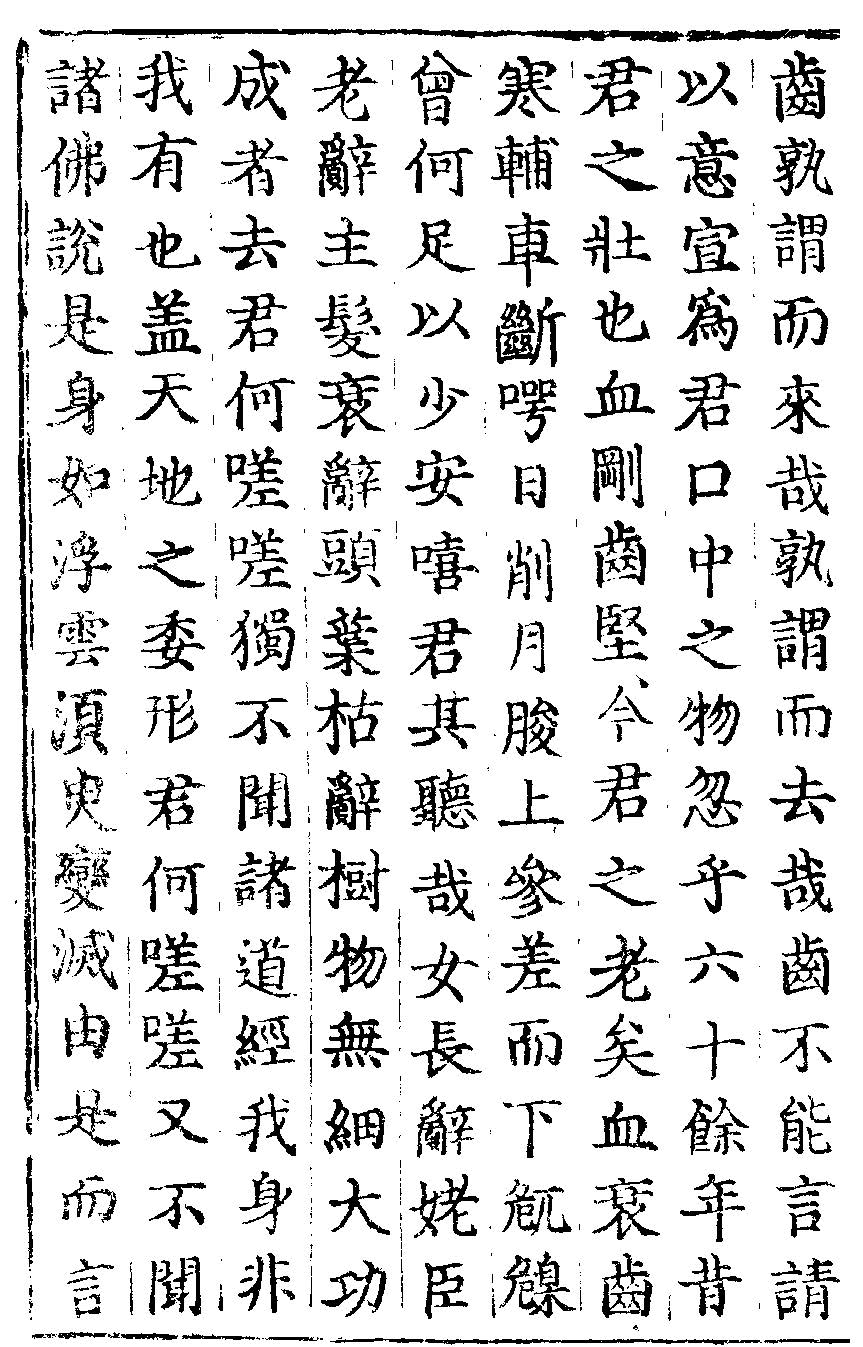 齒孰謂而來哉孰謂而去哉齒不能言請
以意宣爲君口中之物忽乎六十餘年昔
君之壯也血剛齒堅今君之老矣血衰齒
寒輔車斷㗁日削月朘上參差而下卼臲
曾何足以少安嘻君其聽哉女長辭姥臣
老辭主髮衰辭頭葉枯辭樹物無細大功
成者去君何嗟嗟獨不聞諸道經我身非
我有也盖天地之委形君何嗟嗟又不聞
諸佛說是身如浮雲湏臾變滅由是而言